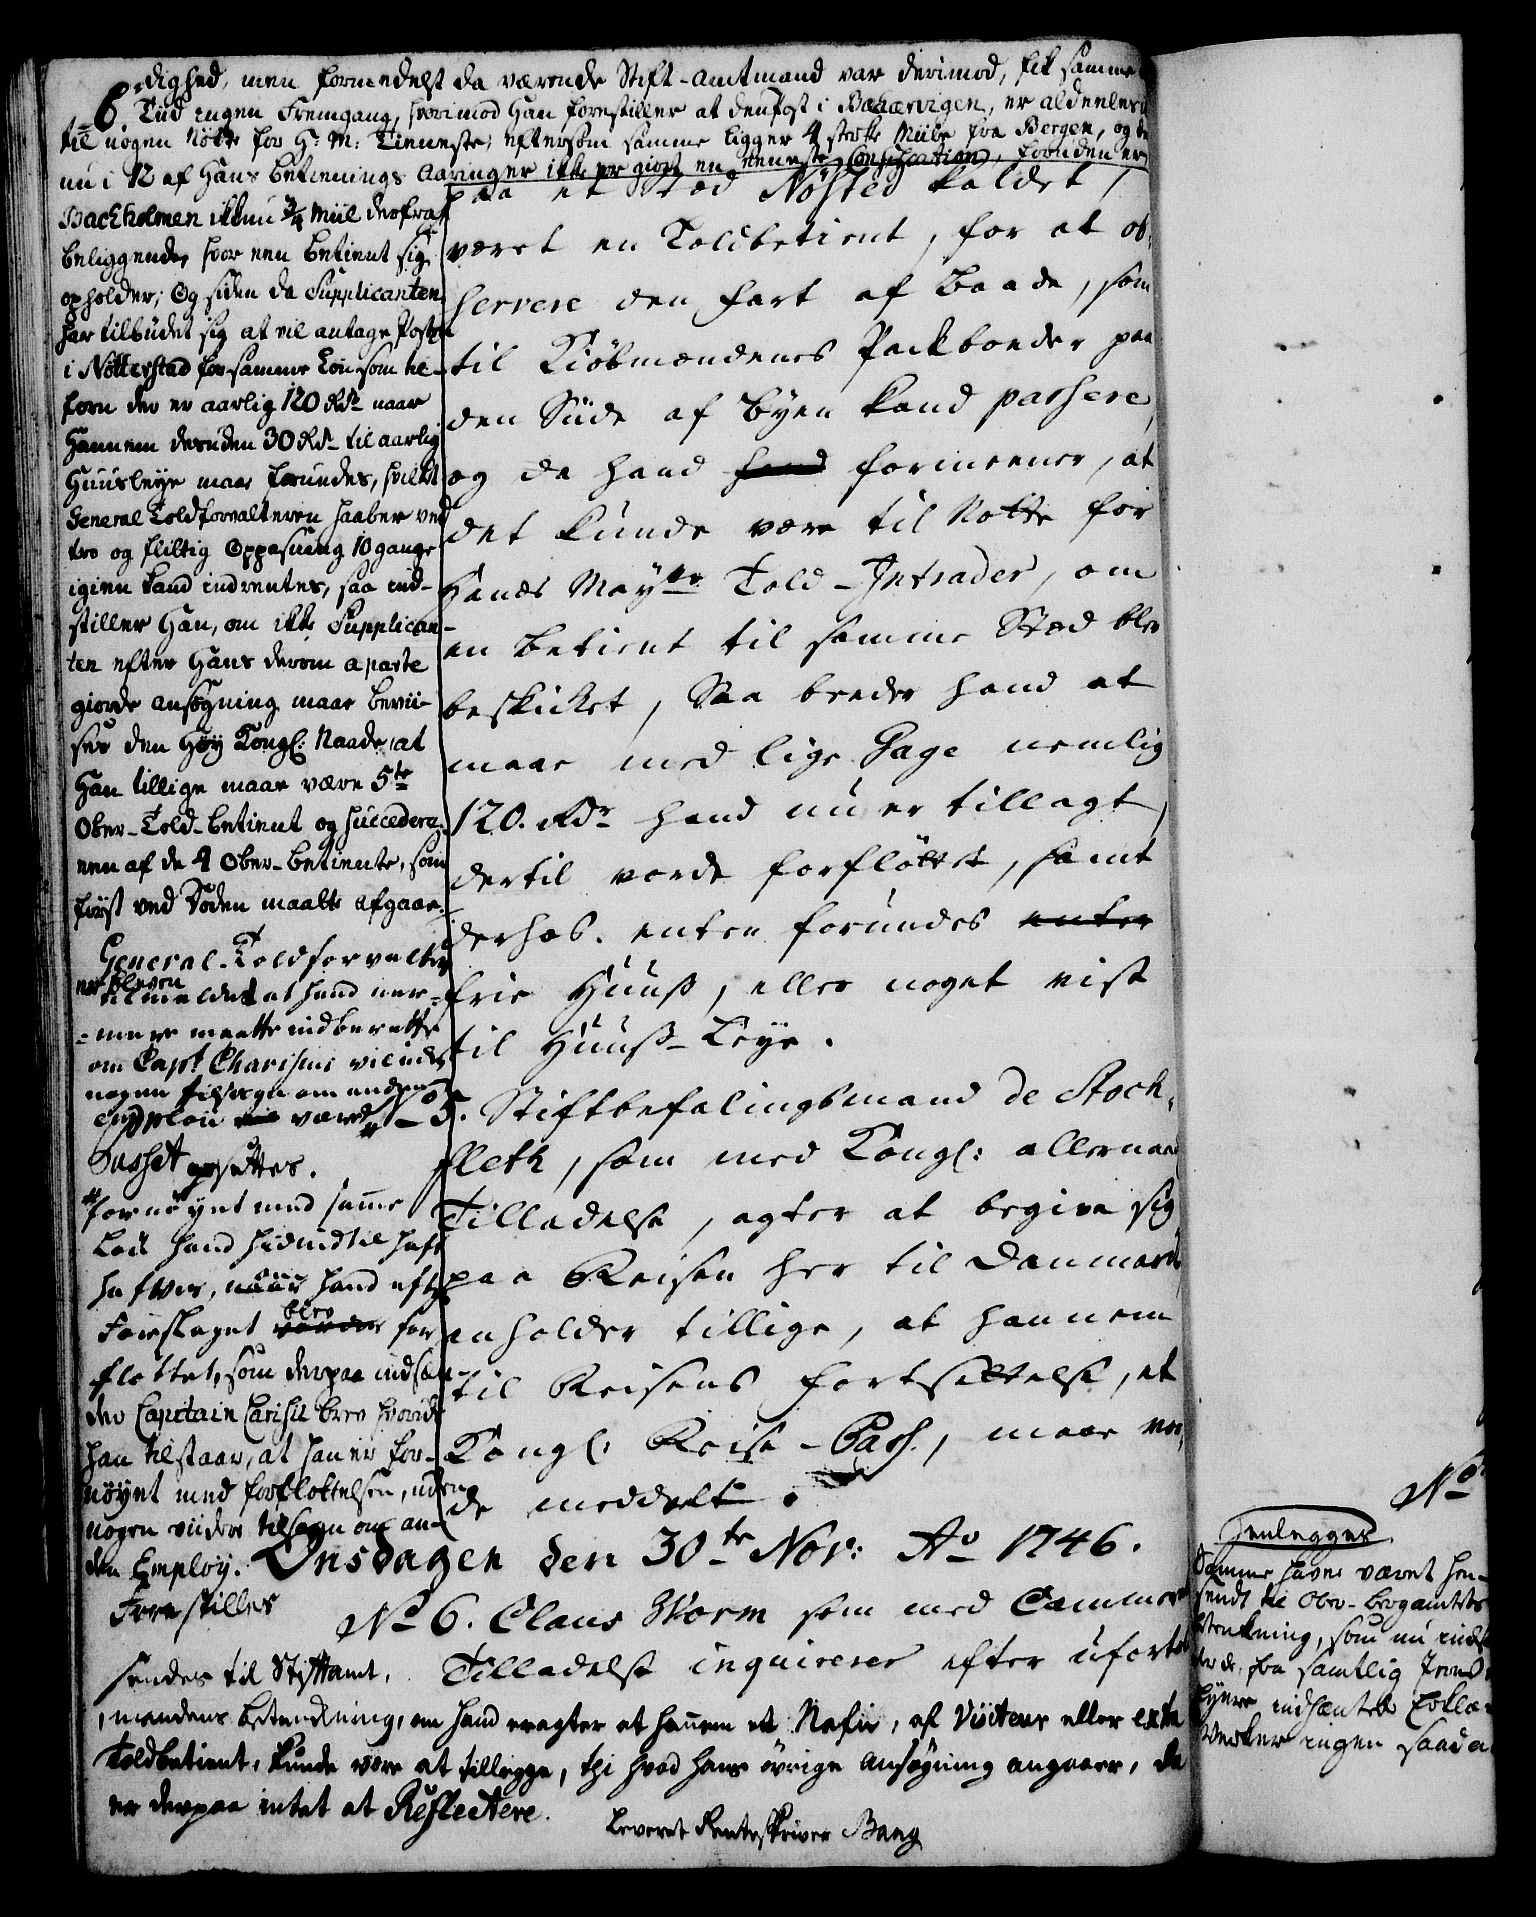 -dighed, men formedelst da værende Stift-Amtmand var derimod, fik samme
6. Tid ingen Fremgang, hvorimod Han forestiller at den Post i Bakarvigen, er aldeeles
til nogen Nötte for H: M: Tienneste, eftersom samme ligger 4 sterke Miile fra Bergen, og
nu i 12 af Hans betienings Aaringer ikke er giort en eneste Confiscation, foruden er
Backholmen ikkun 3/4 Miil derfra
beliggende, hvor een Betient sig
opholder; Og siden da Supplicanten
har tilbudet sig at vil antage Posten
i Nötterstad for samme Lön som til-
forn der er aarlig 120 Rdr naar
Hannem desuden 30 Rdr til aarlig
Huusleye maae forundes, hvilket
General Toldforvalteren haaber ved
troe og flittig Oppasning 10 gange
igien kand indrentes, saa ind-
stiller Han, om ikke Supplican-
ten efter Hans derom aparte
giorde ansøgning maae bevii-
ses den Høy Kongl: Naade, at
Han tillige maae være 5te
Ober-Told-betient og succedere
een af de 4 Ober-betiente, som
først ved Døden maatte afgaae.
General-Toldforvalter
er bleven
tilmeldet at hand nær-
-mere maatte indberette
om Capt Charisius vil uden
nogen tilsagn om anden
employ være
Dusset opsettes.
fornöyet med samme
hand hidindtil haft
hafver, naar hand efter
blev
Forslaget vorder for
flöttet, som derpaa indsen
der Capitain Carisii brev hvorudi
han tilstaar, at han er for-
nöyet med forflöttelsen, uden
nogen viidere tilsagn om an-
den Employ.
Forestilles
paa et Sted Nösted kaldet,
været en Toldbetient, for at ob-
servere den fart af Baade, som
til Kiöbmændenes Packboeder paa
den Siide af Byen kand passere,
og da hand hand formeener, at
det kunde være til Notte for
Hands Mayts Told-Intrader, om
en betient til samme Sted blev
beskicket, Saa beeder hand at
maae med lige Gage nemlig
120. Rdr hand nu er tillagt,
dertil vorde forflöttet, samt
derhos. enten forundes enten
frie Huuß, eller noget vist
til Huuß-Leye.
No 5. Stiftbefalingsmand de Stock-
fleth, som med Kongl: allernaad
Tilladelse, agter at begive sig
paa Reisen her til Danmark
anholder tillige, at hannem
til Reisens fortsettelse, et
Kongl: Reise-Pass., maae vor-
de meddeelt.
Onsdagen den 30te Nov: Ao 1746.
No 6. Claus Worm som med Cammer
Tilladelse inquirerer efter ufortol
sendes til Stiftamt-
mandens betenkning, om hand eragter at hannem et Nafn, af Visiteur eller extra
Toldbetient, kunde være at tillegge, thi hvad hans övrige Ansøgning angaaer, da
er derpaa intet at Reflectere.
Leveret Renteskriver Bang
No
henlegges
Samme haver været hen-
sendt til Ober-Bergamtets
betenkning, som nu
fra samtlig
indhentede
Verker ingen saada